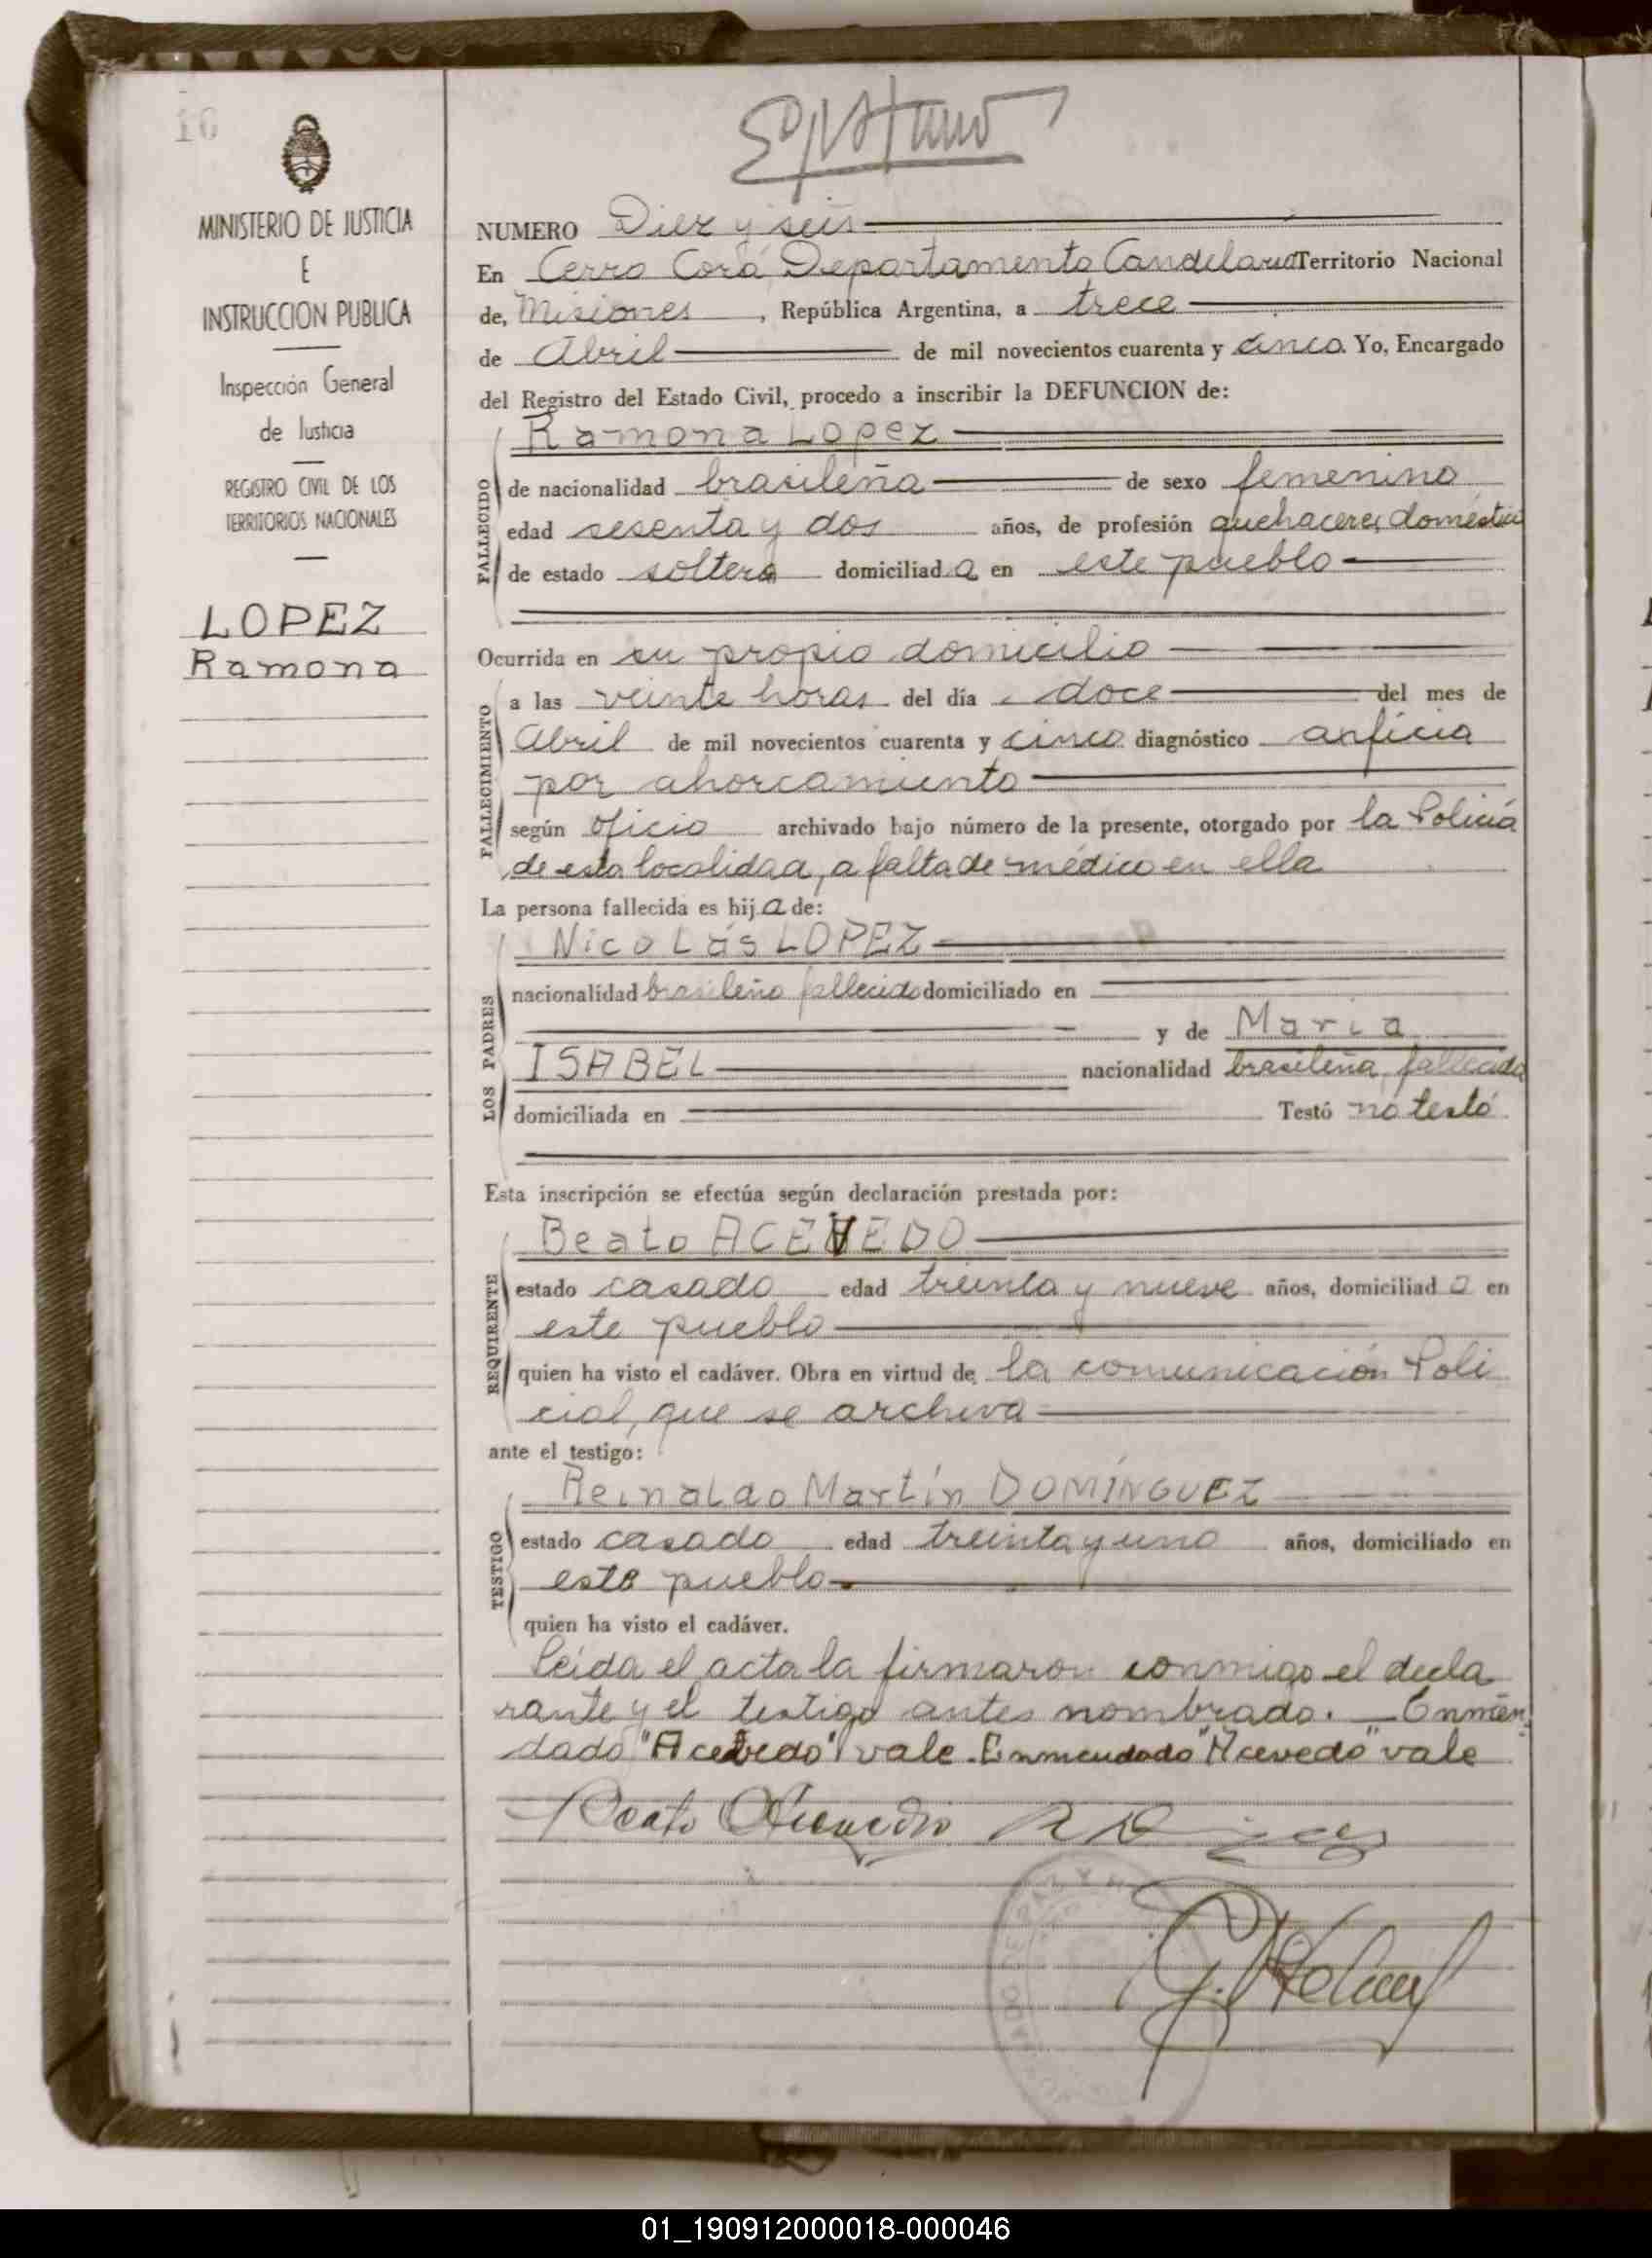 16
MINISTERIO DE JUSTICIA
E
INSTRUCCION PUBLICA
Inspección General
de Justicia
REGISTRO CIVIL DE LOS
TERRITORIOS NACIONALES
LOPEZ
Ramona
NUMERO Diez y seis
En Cerro Corá, Departamento Candelaria Territorio Nacional
de, Misiones, República Argentina, a trece
de Abril de mil novecientos cuarenta y cinco. Yo, Encargado
del Registro del Estado Civil, procedo a inscribir la DEFUNCION de:
Ramona Lopez
FALLECIDO
de nacionalidad brasileña de sexo femenino
edad sesenta y dos años, de profesión quehaceres doméstico
de estado soltera domiciliad a en este pueblo
Ocurrida en su propio domicilio
FALLECIMIENTO
a las veinte horas del día doce del mes de
Abril de mil novecientos cuarenta y cinco diagnóstico anficia
por ahorcamiento
según oficio archivado bajo número de la presente, otorgado por la Policía
de esta localidad, a falta de médico en ella
La persona fallecida es hij a de:
LOS PADRES
Nicolás LOPEZ
nacionalidad brasileño fallecido domiciliado en
y de Maria
ISABEL nacionalidad brasileña, fallecida
domiciliada en Testó no testó
Esta inscripción se efectúa según declaración prestada por:
REQUIRENTE
Beato ACEVEDO
estado casado edad treinta y nueve años, domiciliad o en
este pueblo
quien ha visto el cadáver. Obra en virtud de la comunicación Poli
cial, que se archiva
ante el testigo:
TESTIGO
Reinaldo Martín DOMÍNGUEZ
estado casado edad treinta y uno años, domiciliado en
este pueblo
quien ha visto el cadáver.
Leída el acta la firmaron conmigo el decla
rante y el testigo antes nombrado. — Enmen
dado "Acevedo" vale. Enmendado "Acevedo" vale
Beato Acevedo
01_190912000018-000046